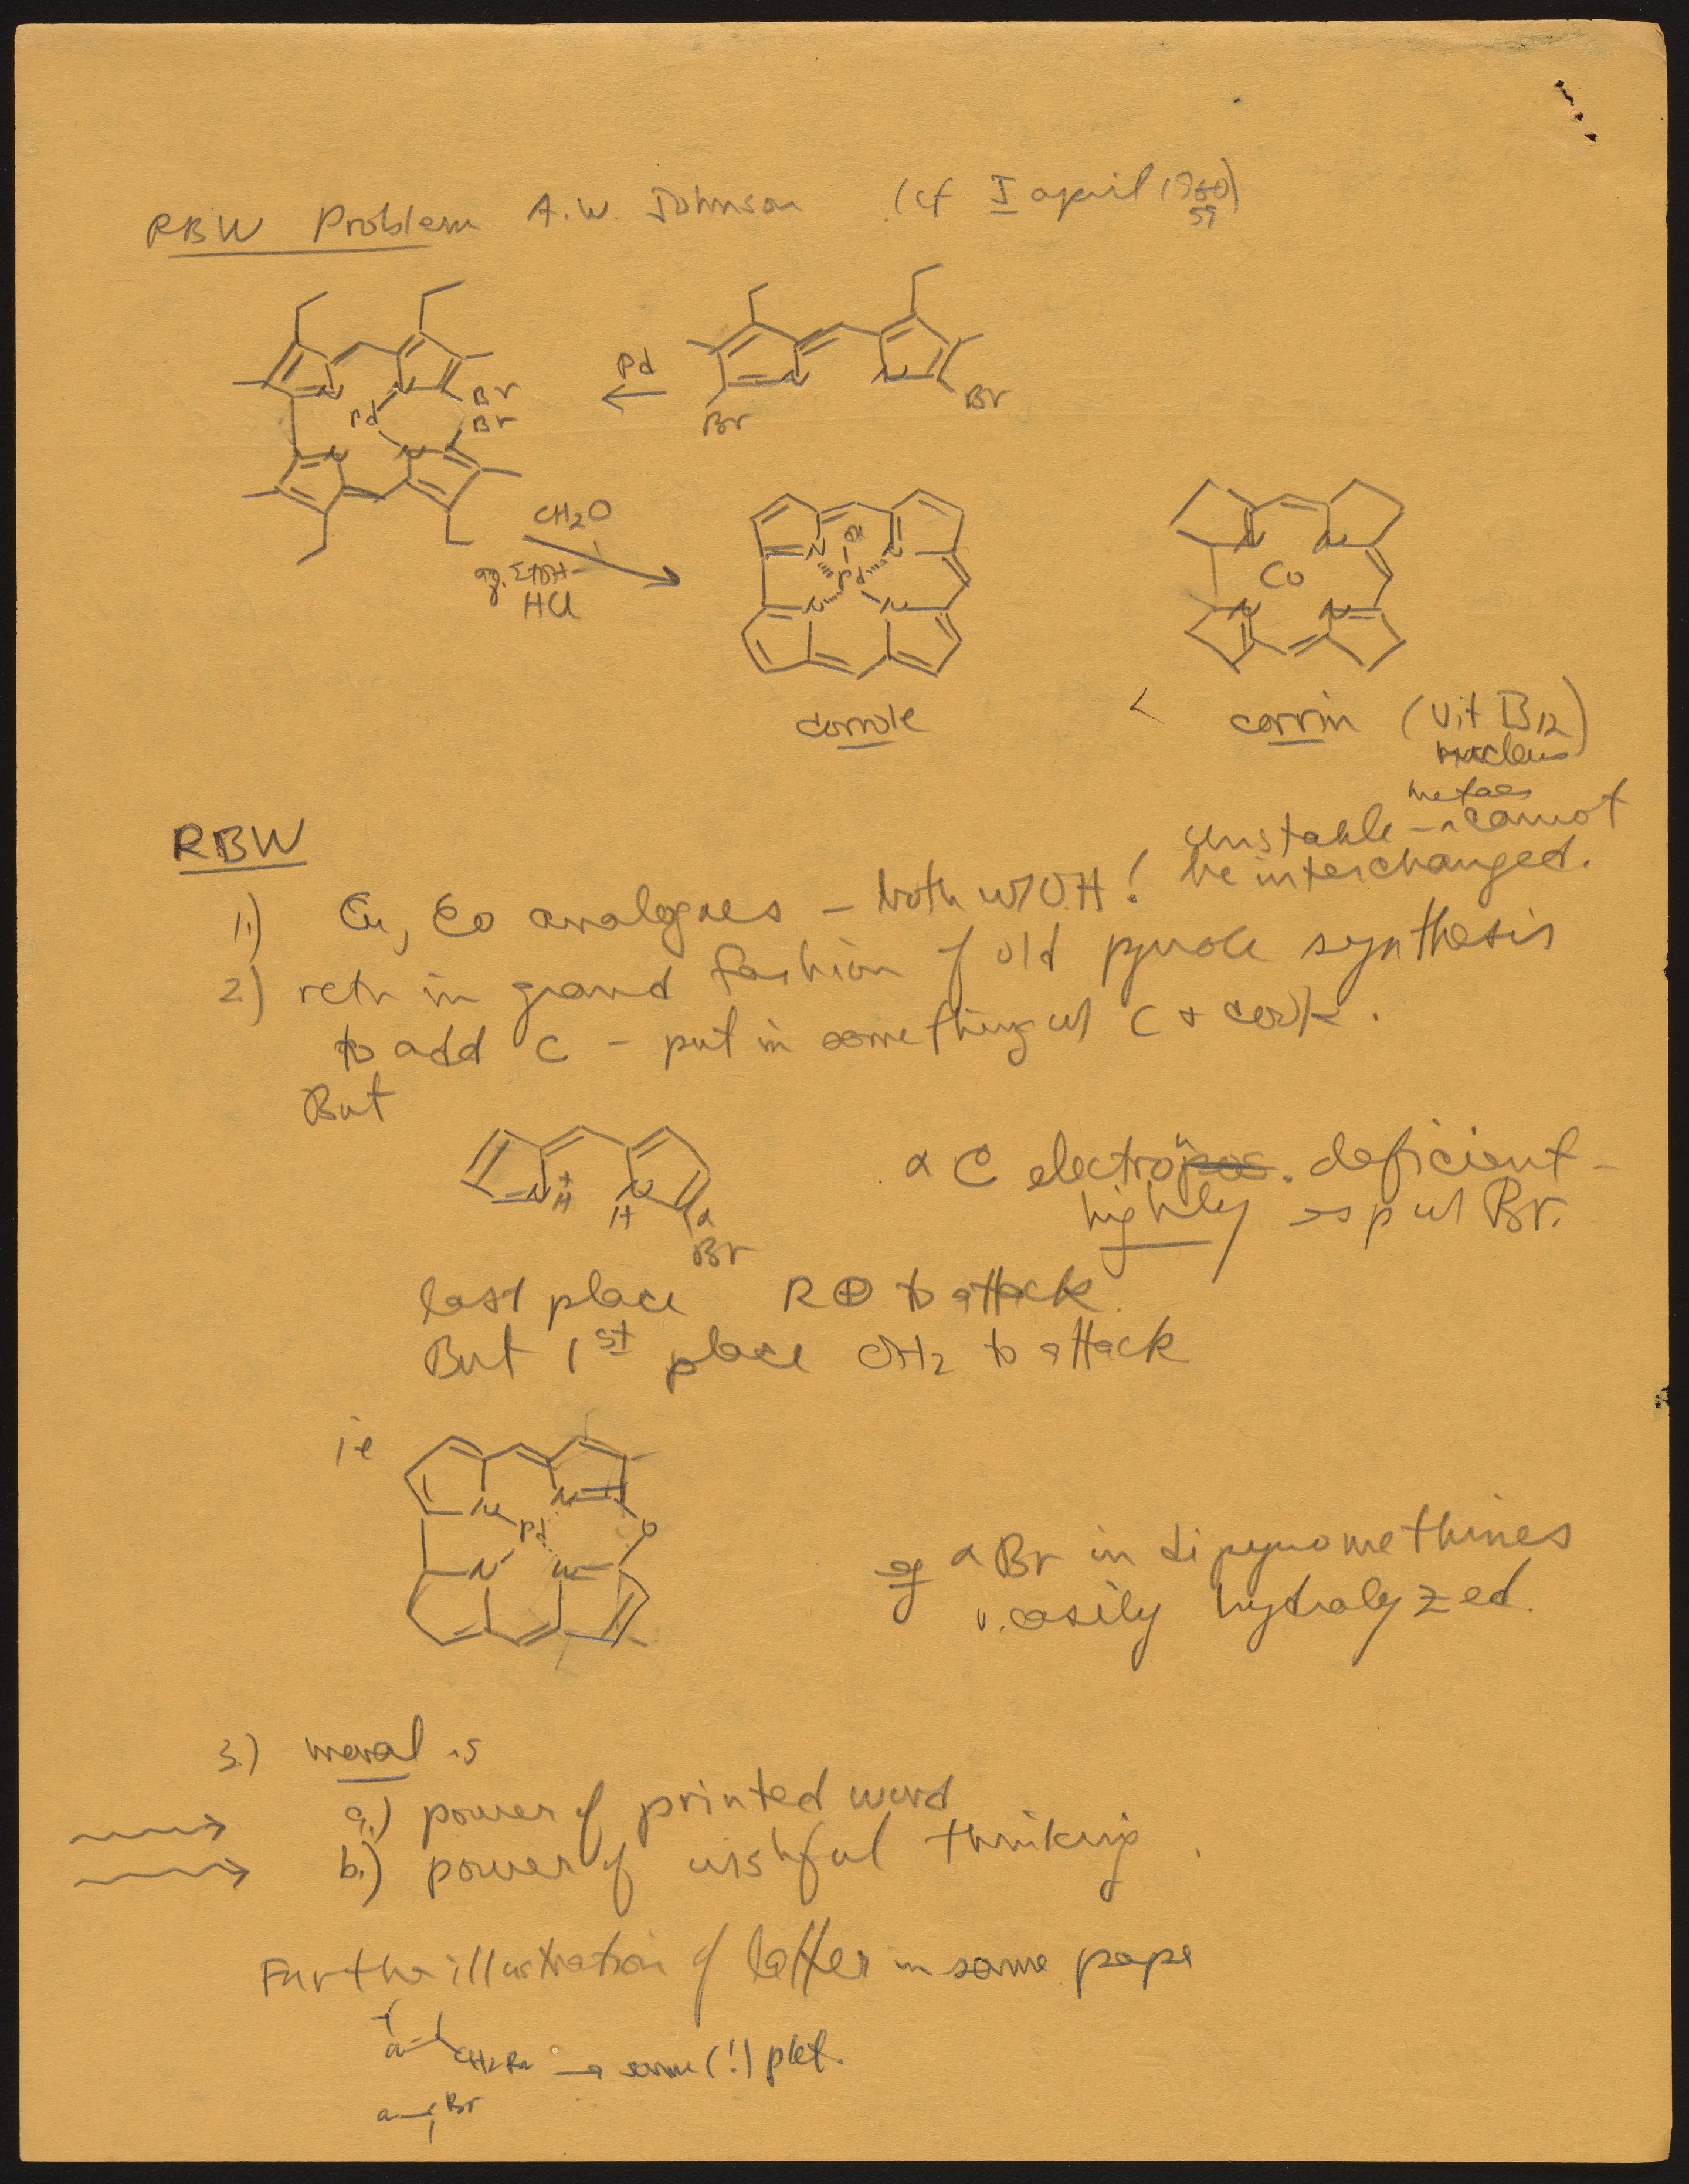 RBW Problem A.W. Johnson (cf I april 1960)
59
Pd
Br
Br
Pd
Br
Br
N
N
N
N
N
N
CH2O
aq. EtOH-
HCl
N
N
Pd
N
N
Co
N
N
N
N
corrole
< corrin (Vit B12)
nucleus
RBW
1.) Cu, Co analogues - both w/OH! unstable - metals cannot
be interchanged.
2) retn in grand fashion of old pyrrole synthesis
to add C - put in something w/ C & cook.
But
N+
H
N
H
α
Br
α C electron deficient -
highly esp w/ Br.
last place R⊕ to attack.
But 1st place OH2 to attack
ie
N
N
Pd
O
N
N
eg α Br in dipyrromethines
v. easily hydrolyzed.
3) moral is
a.) power of printed word
b.) power of wishful thinking.
Further illustration of latter in same pape
CH2Br → same (!) pdt.
Br